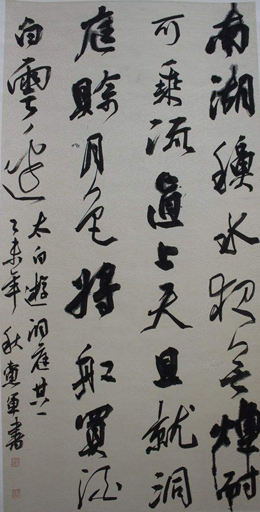 南湖穐水夜無煙耐
可乘流直上天且就洞
庭賒月色將船買酒
白雲邊
太白遊洞庭其一
乙未年秋軍書